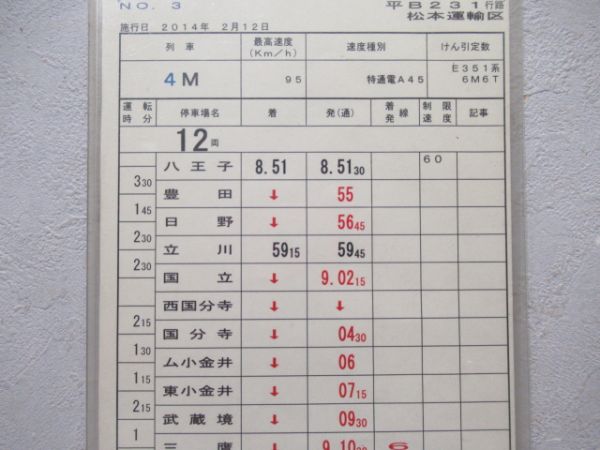 NO. 3 平B231行路
施行日 2014年 2月12日 松本運輸区
列車 最高速度(Km/h) 速度種別 けん引定数
4M 95 特通電A45 E351系 6M6T
運転時分 停車場名 着 発(通) 着発線 制限速度 記事
12両
八王子 8.51 8.51 30 60
3 30
豊田 ↓ 55
1 45
日野 ↓ 56 45
2 30
立川 59 15 59 45
2 30
国立 ↓ 9.02 15
西国分寺 ↓ ↓
2 15
国分寺 ↓ 04 30
1 30
ム小金井 ↓ 06
1 15
東小金井 ↓ 07 15
2 15
武蔵境 ↓ 09 30
1
三鷹 ↓ 9.10 30 6